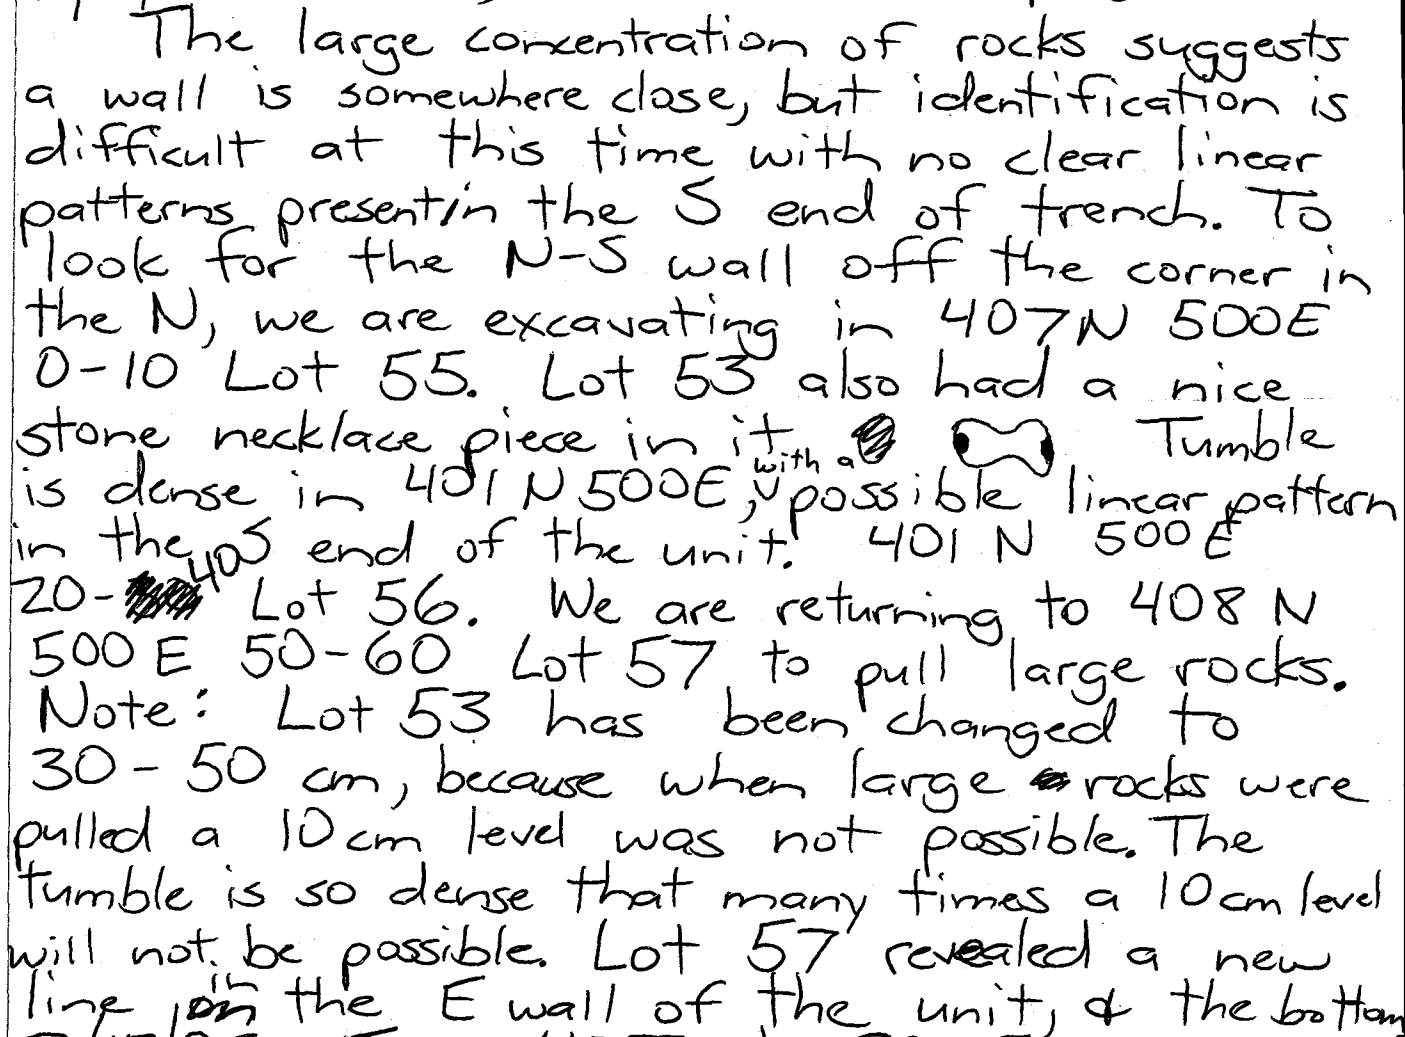 The large concentration of rocks suggests
a wall is somewhere close, but identification is
difficult at this time with no clear linear
patterns present in the S end of trench. To
look for the N-S wall off the corner in
the N, we are excavating in 407N 500E
0-10 Lot 55. Lot 53 also had a nice
stone necklace piece in it Tumble
is dense in 401 N 500E, with a possible linear pattern
in the S end of the unit. 401 N 500E
20-40 Lot 56. We are returning to 408 N
500 E 50-60 Lot 57 to pull large rocks.
Note: Lot 53 has been changed to
30-50 cm, because when large rocks were
pulled a 10cm level was not possible. The
tumble is so dense that many times a 10cm level
will not be possible. Lot 57 revealed a new
line in the E wall of the unit, & the bottom